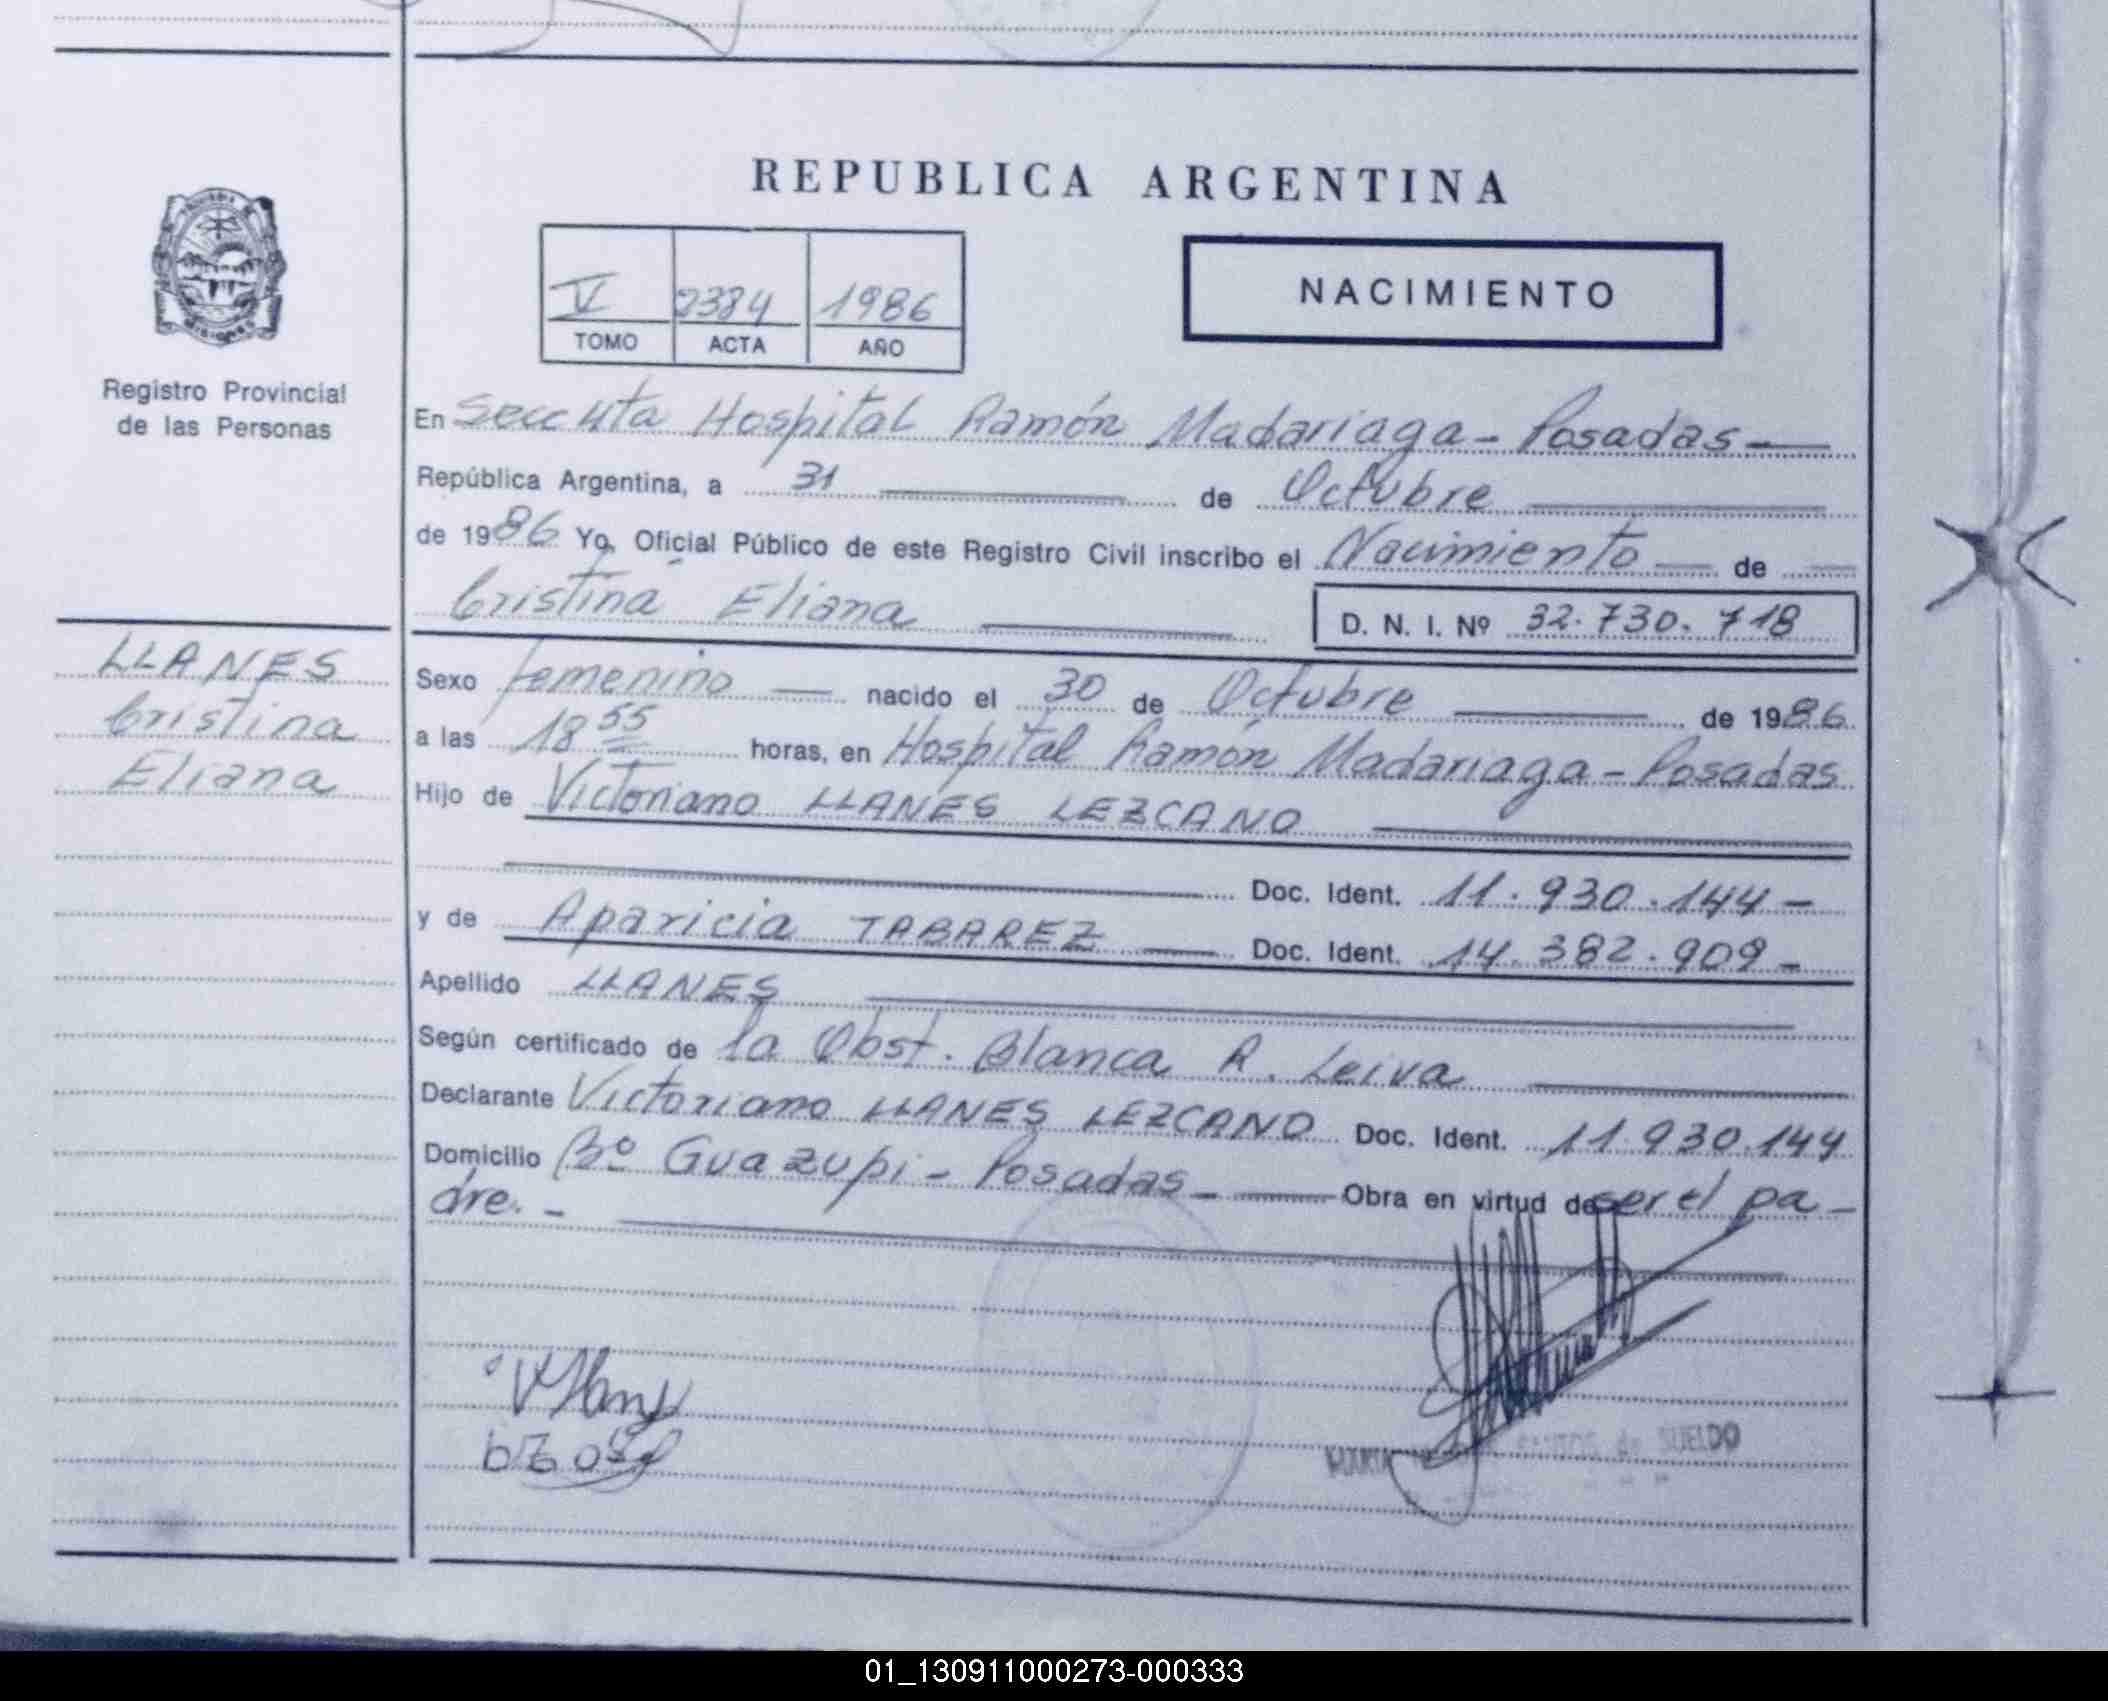 REPUBLICA ARGENTINA
V 2384 1986
TOMO ACTA AÑO
NACIMIENTO
Registro Provincial
de las Personas
En Secc 4ta Hospital Ramón Madariaga - Posadas
República Argentina, a 31 de Octubre
de 1986 Yo, Oficial Público de este Registro Civil inscribo el Nacimiento de
Cristina Eliana D. N. I. Nº 32.730.718
LLANES
Cristina
Eliana
Sexo femenino nacido el 30 de Octubre de 1986
a las 18 55 horas, en Hospital Ramón Madariaga - Posadas
Hijo de Victoriano LLANES LEZCANO
Doc. Ident. 11.930.144 -
y de Aparicia TABAREZ Doc. Ident. 14.382.909 -
Apellido LLANES
Según certificado de la Obst. Blanca R. Leiva
Declarante Victoriano LLANES LEZCANO Doc. Ident. 11.930.144
Domicilio Bº Guazupi - Posadas - Obra en virtud de ser el pa -
dre. -
SANTOS de SUELDO
01_130911000273-000333